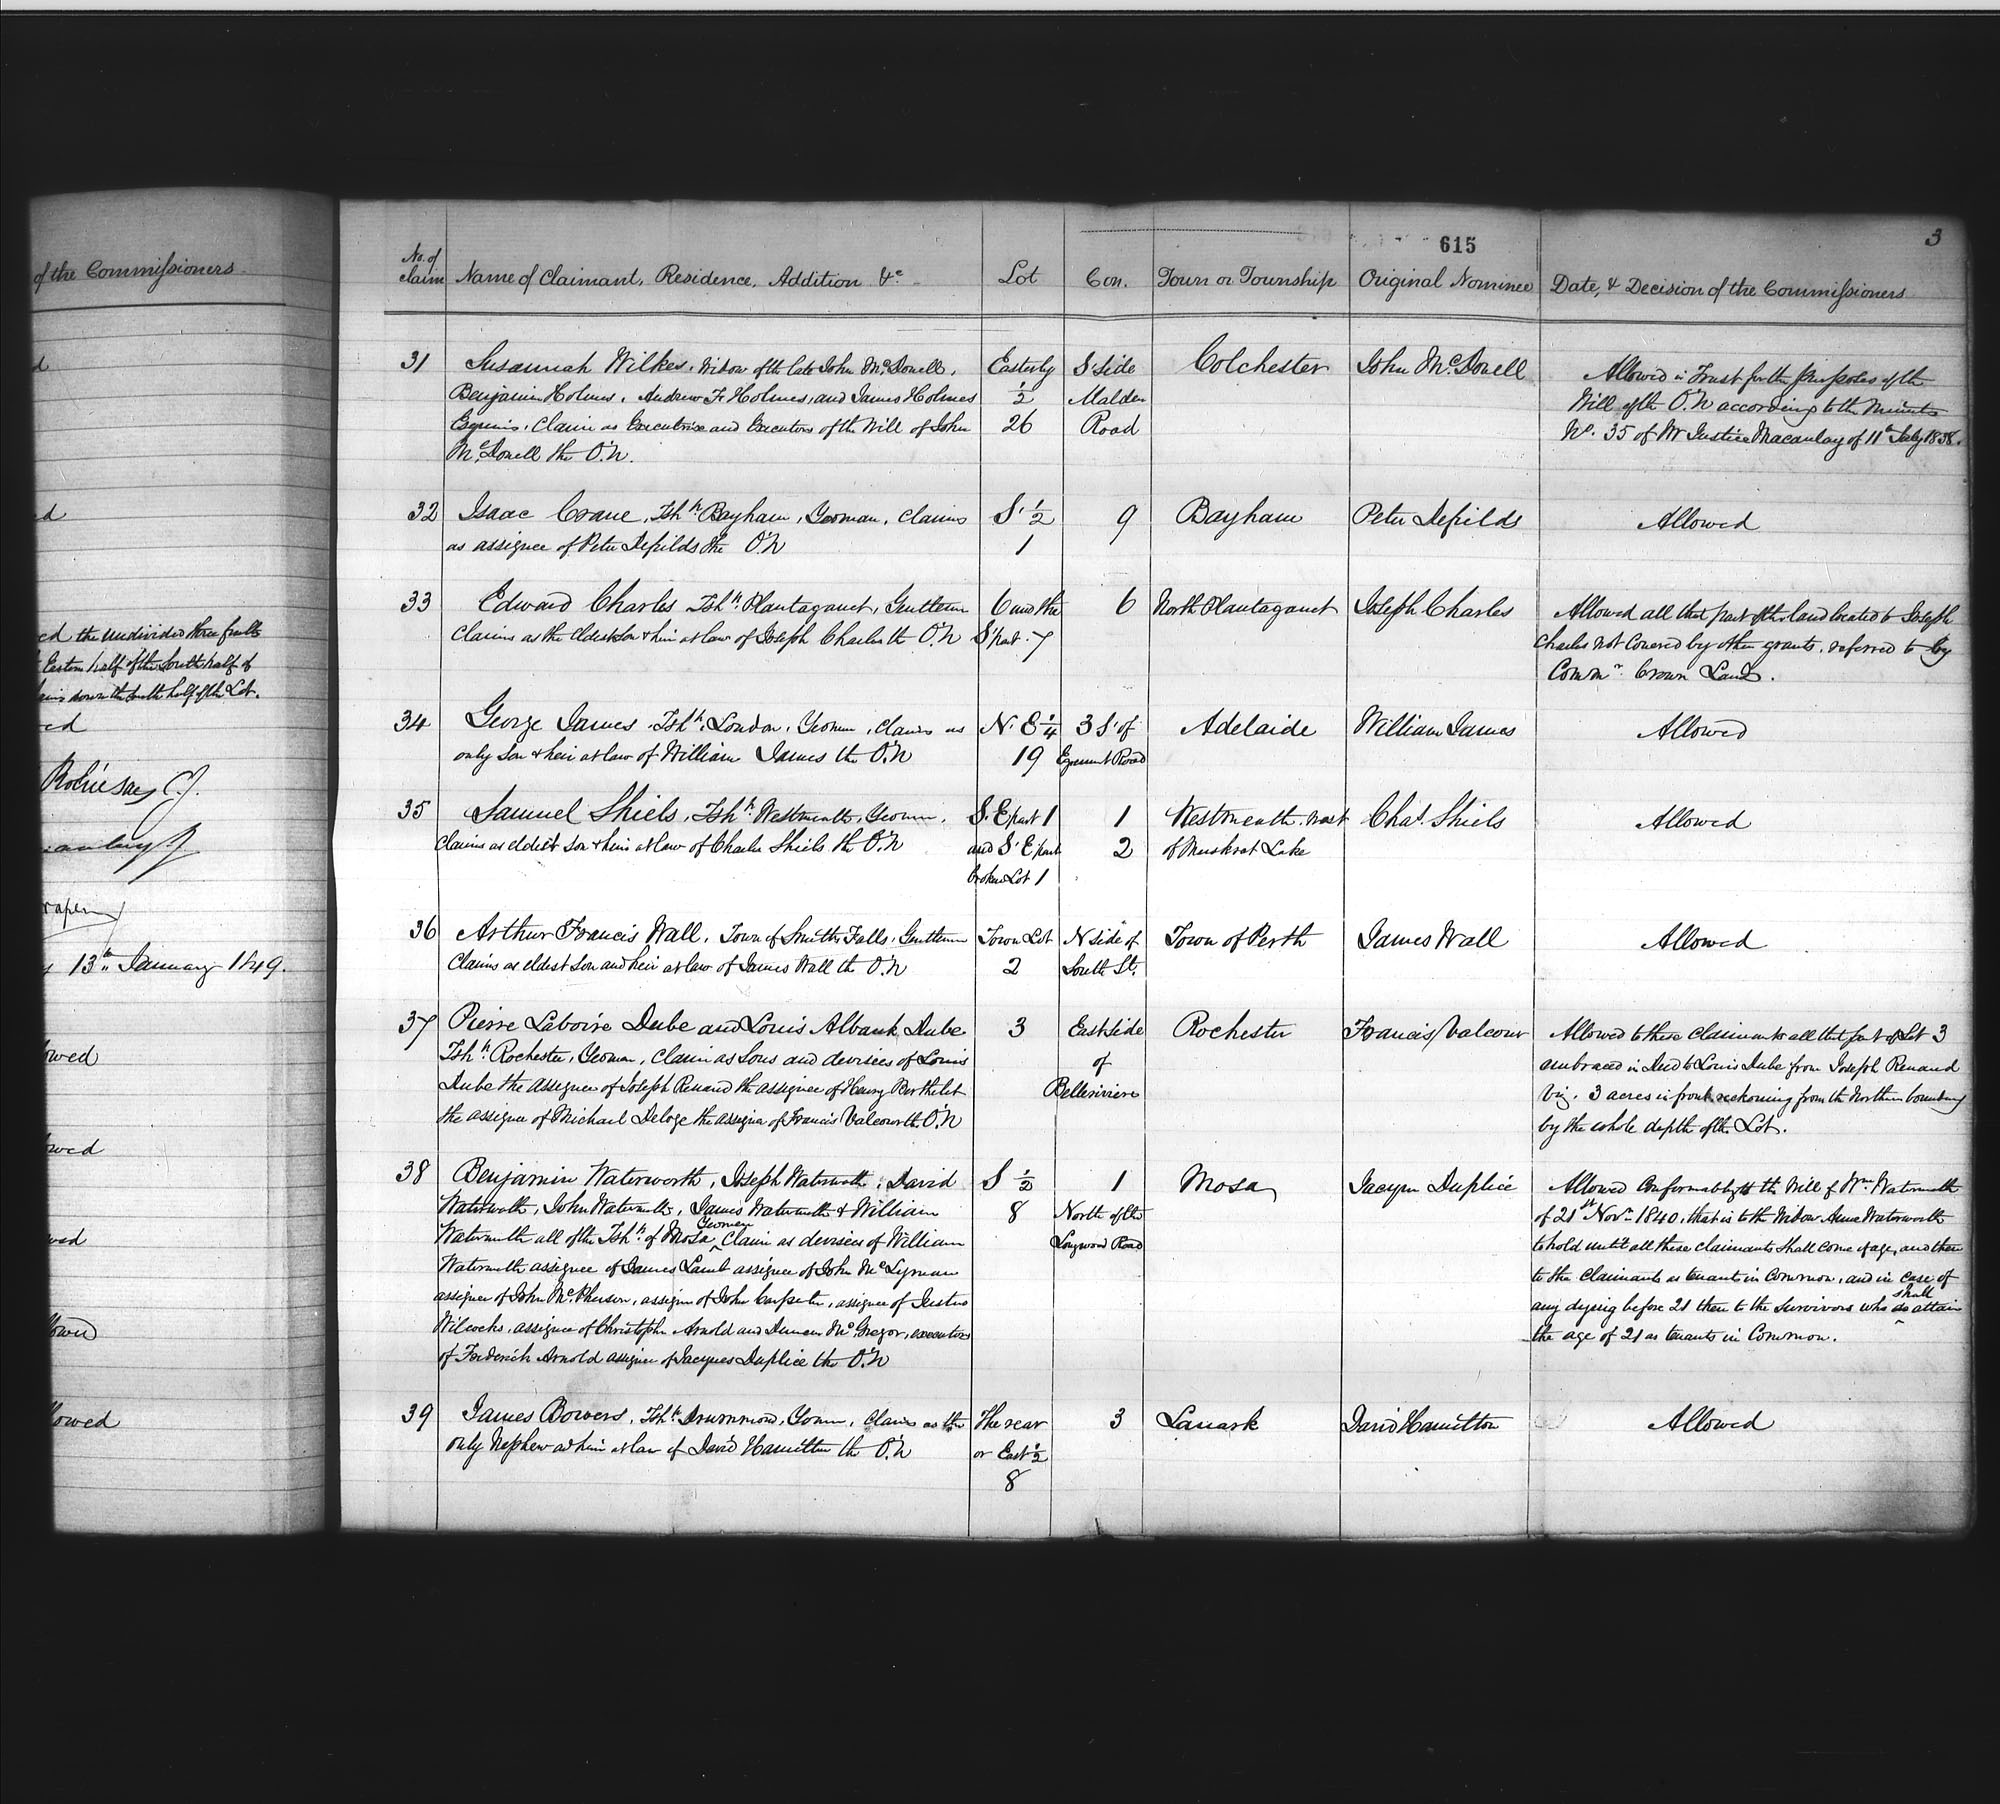 of the Commissioners
ed the undivided three fourths
Eastern half of the South half of
down the South half of the Lot.
Robinson, C.J.
13th January 1849.
615
3
No. of claim
Name of Claimant, Residence, Addition &c
Lot
Con.
Town or Township
Original Nominee
Date, & Decision of the Commissioners
31
Susannah Wilkes, Widow of the late John McDonell,
Benjamin Holmes, Andrew F Holmes, and James Holmes
Esquires, Claim as Executrix and Executors of the Will of John
McDonell the O.N.
Easterly
1/2
26
S side
Malden
Road
Colchester
John McDonell
Allowed in Trust for the purposes of the
Will of the O.N according to the Minute
No. 35 of Mr Justice Macaulay of 11th July 1838.
32
Isaac Crane, Tshp. Bayham, Yeoman, Claims
as assignee of Peter Defields the O.N
S 1/2
1
9
Bayham
Peter Defields
Allowed
33
Edward Charles Tshp. Plantaganet, Gentleman
Claims as the eldest son & heir at law of Joseph Charles the O.N
6 and the
S part 7
6
North Plantaganet
Joseph Charles
Allowed all that part of the land located to Joseph
Charles not covered by other grants, referred to by
Commr. Crown Lands.
34
George James, Tshp. London, Yeoman, Claims as
only Son & heir at law of William James the O.N
N. E 1/4
19
3 S of
Egremont Road
Adelaide
William James
Allowed
35
Samuel Shiels, Tshp. Westmeath, Yeoman,
Claims as eldest son & heir at law of Charles Shiels the O.N
S. E part 1
and S E part
broken Lot 1
1
2
Westmeath West
of Muskrat Lake
Chas. Shiels
Allowed
36
Arthur Francis Wall, Town of Smiths Falls, Gentleman
Claims as eldest son and heir at law of James Wall the O.N
Town Lot
2
N side of
South St.
Town of Perth
James Wall
Allowed
37
Pierre Laboire Dube and Louis Albank Dube
Tshp. Rochester, Yeoman, Claim as Sons and devisees of Louis
Dube the assignee of Joseph Renaud the assignee of Henry Berthelet
the assignee of Michael Deloge the assignee of Francis Valcour the O.N
3
East side
of
Belleriviere
Rochester
Francis Valcour
Allowed to these Claimants all that part of Lot 3
embraced in Deed to Louis Dube from Joseph Renaud
Viz. 3 acres in front reckoning from the Northern boundary
by the whole depth of the Lot.
38
Benjamin Waterworth, Joseph Waterworth, David
Waterworth, John Waterworth, James Waterworth & William
Waterworth all of the Tshp. of Mosa Yeomen Claim as devisees of William
Waterworth assignee of James Lamb assignee of John McLyman
assignee of John McPherson, assignee of John Carpenter, assignee of Justus
Wilcocks, assignee of Christopher Arnold and Duncan McGregor, executors
of Frederick Arnold assignee of Jacques Duplice the O.N
S 1/2
8
1
North of the
Longwood Road
Mosa
Jacques Duplice
Allowed Conformably to the Will of Wm. Waterworth
of 21st Novr. 1840, that is to the Widow Anna Waterworth
to hold until all these claimants shall come of age, and then
to the Claimants as tenants in Common, and in case of
any dying before 21 then to the Survivors who shall so attain
the age of 21 as tenants in Common.
39
James Bowers, Tshp. Drummond, Yeoman, Claims as the
only Nephew and heir at law of David Hamilton the O.N
The rear
or East 1/2
8
3
Lanark
David Hamilton
Allowed